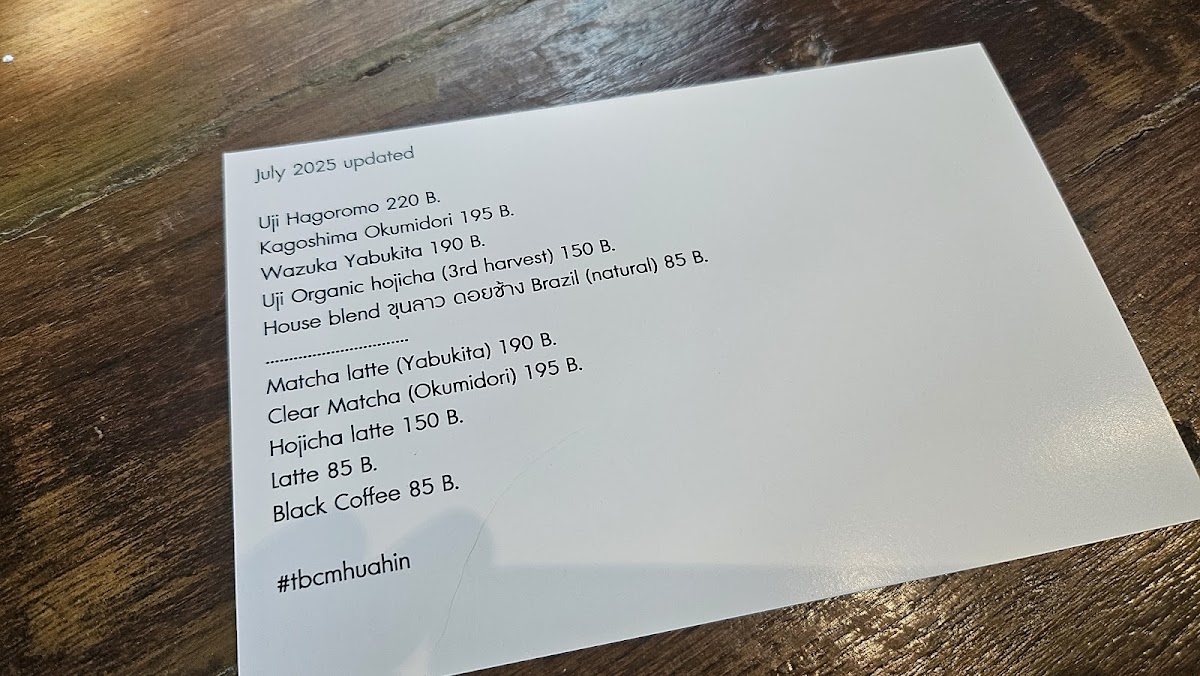 July 2025 updated
Uji Hagoromo 220 B.
Kagoshima Okumidori 195 B.
Wazuka Yabukita 190 B.
Uji Organic hojicha (3rd harvest) 150 B.
House blend ขุนลาว ดอยช้าง Brazil (natural) 85 B.
................................
Matcha latte (Yabukita) 190 B.
Clear Matcha (Okumidori) 195 B.
Hojicha latte 150 B.
Latte 85 B.
Black Coffee 85 B.
#tbcmhuahin